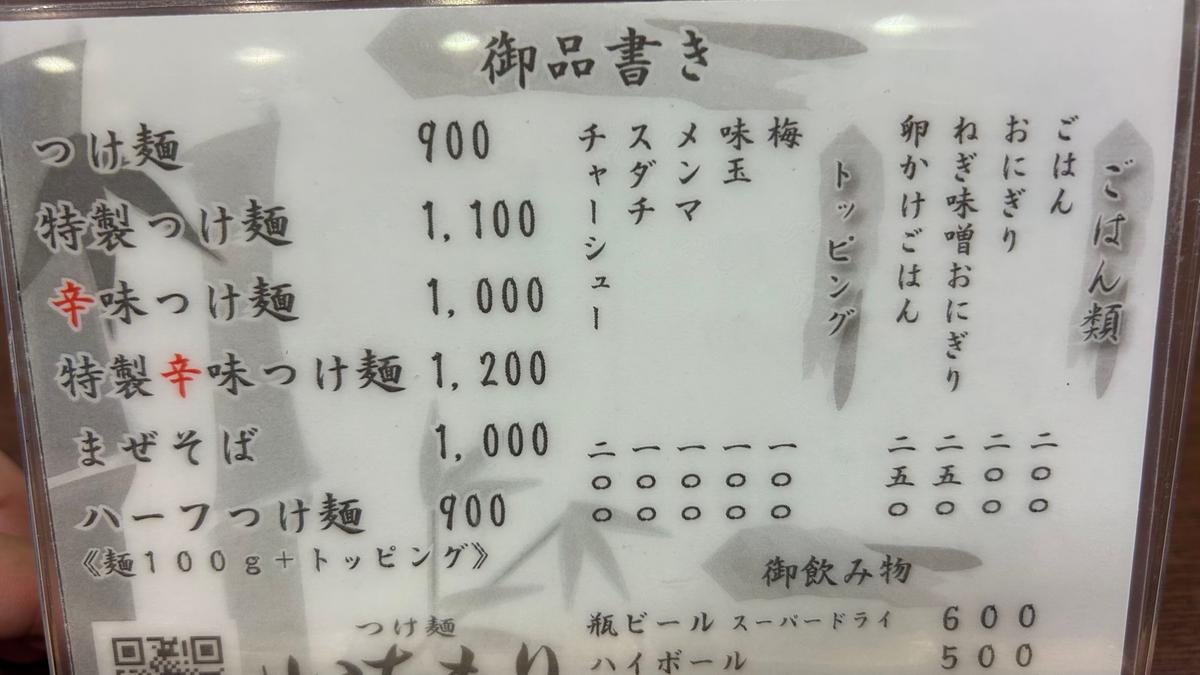 御品書き
つけ麺 900
特製つけ麺 1,100
辛味つけ麺 1,000
特製辛味つけ麺 1,200
まぜそば 1,000
ハーフつけ麺 900
《麺100g+トッピング》
つけ麺
ごはん類
ごはん 二〇〇
おにぎり 二〇〇
ねぎ味噌おにぎり 二五〇
卵かけごはん 二五〇
トッピング
梅 一〇〇
味玉 一〇〇
メンマ 一〇〇
スダチ 一〇〇
チャーシュー 二〇〇
御飲み物
瓶ビール スーパードライ 600
ハイボール 500